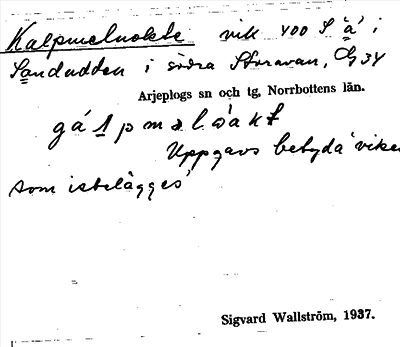 Kalpmeluokte vik 400 S "a" i
Sandudden i södra Storavan, Gg 34
Arjeplogs sn och tg, Norrbottens län.
gá1pməlɷ̀akt
Uppgavs betyda "viken
som isbelägges"
Sigvard Wallström, 1937.